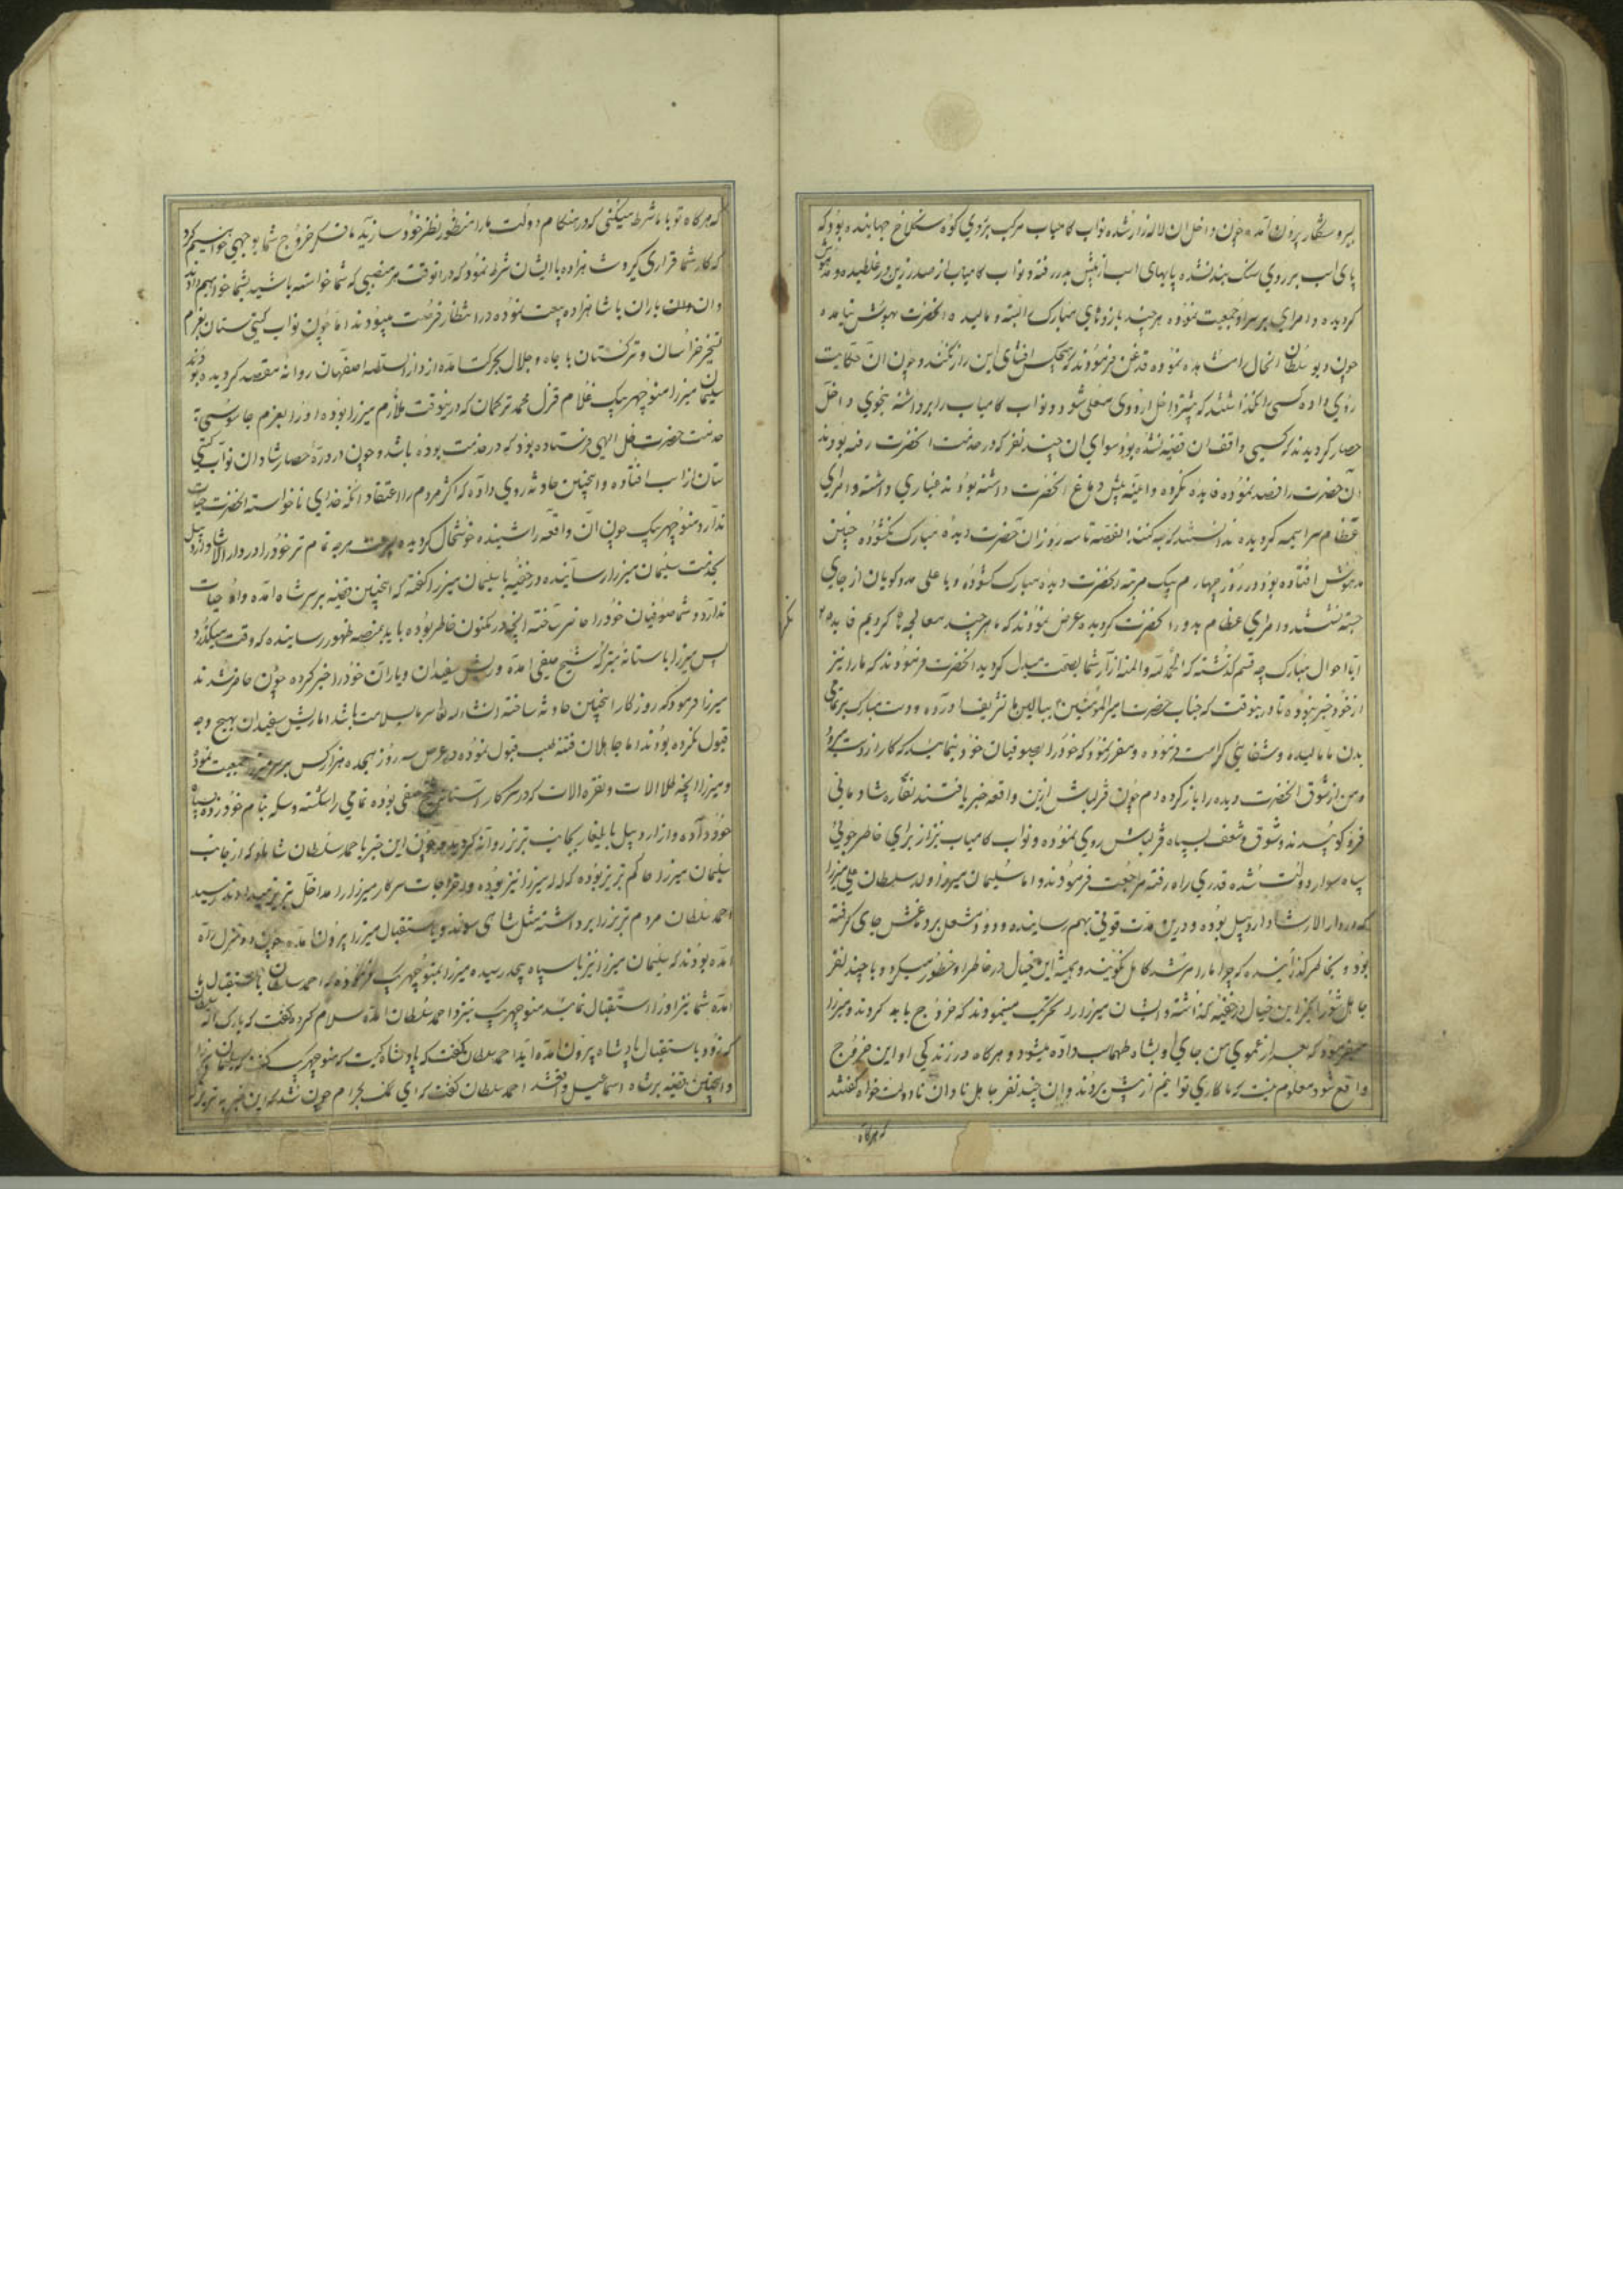 بسیر و شکار بیرون آمده چون داخل ان لاله زار شده نواب کامیاب مرکب بر روی کوه سنگلاخ جهانیده بود که
پای اسب بر روی سنک بند نشده پایهای اسب از پیش بدر رفته و نواب کامیاب از صدر زین در غلطیده و مدهوش
کردیده و امرای بر سر او جمعیت نموده هر چند بازوهای مبارک البسته و مالیده انحضرت بهوش نیامده
چون دیو سلطان انحال را مشاهده نموده قدغن فرمودند که هیچکس افشای این راز نکند و چون ان حکایت
روی داده کسی را نکذاشتند که پیشتر داخل اردوی معلی شود و نواب کامیاب را برداشته بنحوی داخل
حصار کردیدند که کسی واقف ان قضیه نشده بود سوای ان چند نفر که در خدمت انحضرت رفته بودند
آن حضرت را فصد نموده فایده نکرده و آینه پیش دماغ انحضرت داشته بودند غباری داشته و امرای
عظام سراسیمه کردیده ندانستند که چه کنند القصه تا سه روز ان حضرت دیده مبارک نکشوده چنین
مدهوش افتاده بود در روز چهارم بیک مرتبه انحضرت دیده مبارک کشوده و یا علی مدد کویان از جای
جسته نشستند و امرای عظام بدور انحضرت کردیده عرض نمودند که ما هر چند معالجه ها کردیم فایده
ایا احوال مبارک چه قسم کذشته که الحمد لله و المنه ازار شما بصحت مبدل کردید انحضرت فرمودند که ما را نیز
از خود خبر نبوده تا درینوقت که جناب حضرت امیر المومنین ببالین ما تشریف آورده و دست مبارک بر تمامی
بدن ما مالیده و شفای کرامت فرموده و مقرر نمود که خود را بصوفیان خود بنمایید که کار از دست میرود
و من از شوق انحضرت دیده را باز کرده ام چون قزلباش ازین واقعه خبر یافتند نقاره شادمانی
فرو کوبیدند و شوق و شعف بسپاه قزلباش روی نموده و نواب کامیاب نیز از برای خاطر جوئی
سپاه سوار دولت شده قدری راه رفته مراجعت فرمودند و اما سلیمان میرزا ولد سلطان علی میرزا
که در دار الارشاد اردبیل بوده و درین مدت قوتی بهم رسانیده و دود مشعل بر دماغش جای کرفته
بود و بخاطر کذرانیده که چرا ما را مرشد کامل نکویند و همیشه این خیال در خاطر او خطور میکرد و با چند نفر
جاهل شورانکیز این خیال در خفیه کذاشته و ایشان میرزا را تحریک مینمودند که خروج باید کرد و میرزا
میفرمود که بعد از عموی من جای او بشاه طهماسب داده میشود و هرکاه در زندکی او این خروج
واقع شود معلوم نیست که ما کاری توانیم از پیش بردند و ان چند نفر جاهل نادان نادولت خواه کفتند
که هرکاه
که هرکاه تو با ما شرط میکنی که در هنکام دولت ما را منظور نظر خود سازید ما فکر خروج شما بوجهی خواهیم کرد
که کار شما قراری کیرد شاهزاده با ایشان شرط نمود که در انوقت هر منصبی که شما خواسته باشید بشما خواهیم داد
و ان یاران با شاهزاده بیعت نموده در انتظار فرصت میبودند اما چون نواب کیتی ستان بعزم
تسخیر خراسان و ترکستان با جاه و جلال بحرکت آمده از دار السلطنه اصفهان روانه مقصد کردیده بودند
سلیمان میرزا منوچهر بیک غلام قزل محمد ترکمان که درینوقت ملازم میرزا بوده او را بعزم جاسوسی
خدمت حضرت ظل الهی فرستاده بود که در خدمت بوده باشد و چون در دره حصار شادان نواب کیتی
ستان از اسب افتاده و انچنین حادثه روی داده که اکثر مردم را اعتقاد انکه خدای ناخواسته انحضرت حیات
ندارد و منوچهر بیک چون ان واقعه را شنیده خوشحال کردیده بسرعت هر چه تمام تر خود را در دار الارشاد اردبیل
بخدمت سلیمان میرزا رسانیده در خفیه با سلیمان میرزا کفته که انچنین قضیه بر سر شاه آمده و او حیات
ندارد و شما صوفیان خود را حاضر ساخته انچه در مکنون خاطر بوده باید بمنصه ظهور رسانیده که وقت میکذرد
پس میرزا باستانه متبرکه شیخ صفی آمده و ریش سفیدان و یاران خود را خبر کرده چون حاضر شدند
میرزا فرمود که روزکار انچنین حادثه ساخته انشاء الله سلامت باشد اما ریش سفیدان بهیچ وجه
قبول نکرده بودند اما جاهلان فتنه طلب قبول نموده در عرض سه روز هجده هزار کس بر سر میرزا جمعیت نموده
و میرزا انچه طلا الات و نقره الات که در سرکار آستانه شیخ صفی بوده تمامی را شکسته و سکه بنام خود زده بسپاه
خود داده و از اردبیل با یلغار بجانب تبریز روانه کردید و چون این خبر باحمد سلطان شاملو که از جانب
سلیمان میرزا حاکم تبریز بوده که لله میرزا نیز بوده و اخراجات سرکار میرزا را مداخل تبریز میدادند رسید
احمد سلطان مردم تبریز را برداشته مثل شاهی سوند و باستقبال میرزا بیرون آمده چون دو منزل راه
آمده بودند که سلیمان میرزا نیز با سپاه بیحد رسیده میرزا بمنوچهر بیک فرموده که احمد سلطان باستقبال ما
آمده شما نیز او را استقبال نمایید منوچهر بیک نیز نزد احمد سلطان آمده سلام کرد کفت که مبارک الله سلطان
که زود باستقبال پادشاه بیرون آمده اید احمد سلطان کفت که پادشاه کیست که منوچهر بیک کفت سلیمان میرزا
و انچنین قضیه بر شاه اسماعیل واقع شد احمد سلطان کفت که ای نمک بحرام چون شد که این خبر به تبریز